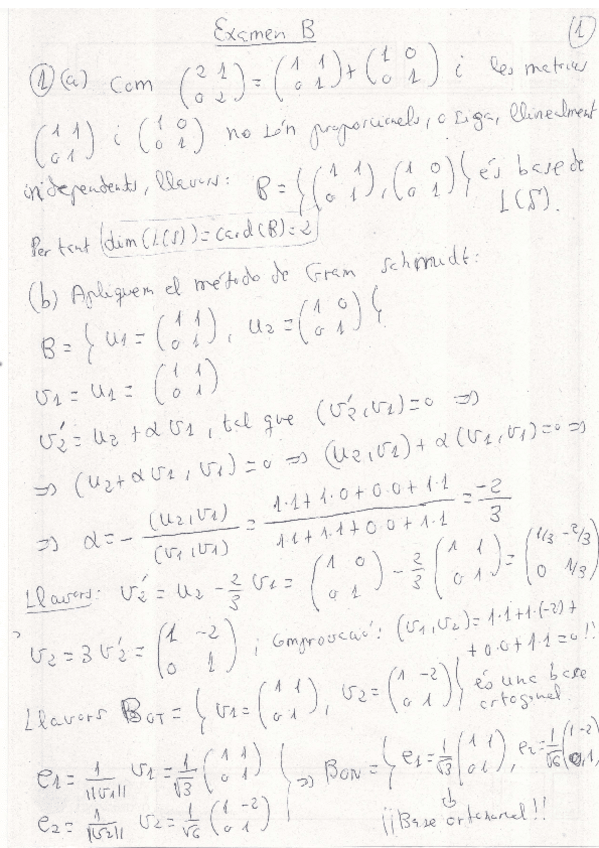 Examen B
1
1 (a) Com (2 1; 0 2) = (1 1; 0 1) + (1 0; 0 1) i les matrius
(1 1; 0 1) i (1 0; 0 1) no són proporcionals, o sigui, llinealment
independents, llavors: B = {(1 1; 0 1), (1 0; 0 1)} és base de
L(S).
Per tant dim(L(S)) = card(B) = 2
(b) Apliquem el método de Gram Schmidt:
B = { u1 = (1 1; 0 1), u2 = (1 0; 0 1) }
v1 = u1 = (1 1; 0 1)
v2' = u2 + α v1, tal que (v2', v1) = 0 ⇒
⇒ (u2 + α v1, v1) = 0 ⇒ (u2, v1) + α (v1, v1) = 0 ⇒
⇒ α = - (u2, v1) / (v1, v1) = (1·1 + 1·0 + 0·0 + 1·1) / (1·1 + 1·1 + 0·0 + 1·1) = -2/3
Llavors: v2' = u2 - 2/3 v1 = (1 0; 0 1) - 2/3 (1 1; 0 1) = (1/3 -2/3; 0 1/3)
v2 = 3 v2' = (1 -2; 0 1) ; comprovació: (v1, v2) = 1·1 + 1·(-2) +
+ 0·0 + 1·1 = 0 !!
Llavors BOT = { v1 = (1 1; 0 1), v2 = (1 -2; 0 1) } és una base
ortogonal.
e1 = 1/||v1|| v1 = 1/√3 (1 1; 0 1)
e2 = 1/||v2|| v2 = 1/√6 (1 -2; 0 1)
⇒ BON = { e1 = 1/√3 (1 1; 0 1), e2 = 1/√6 (1 -2; 0 1)
¡¡Base ortogonal!!